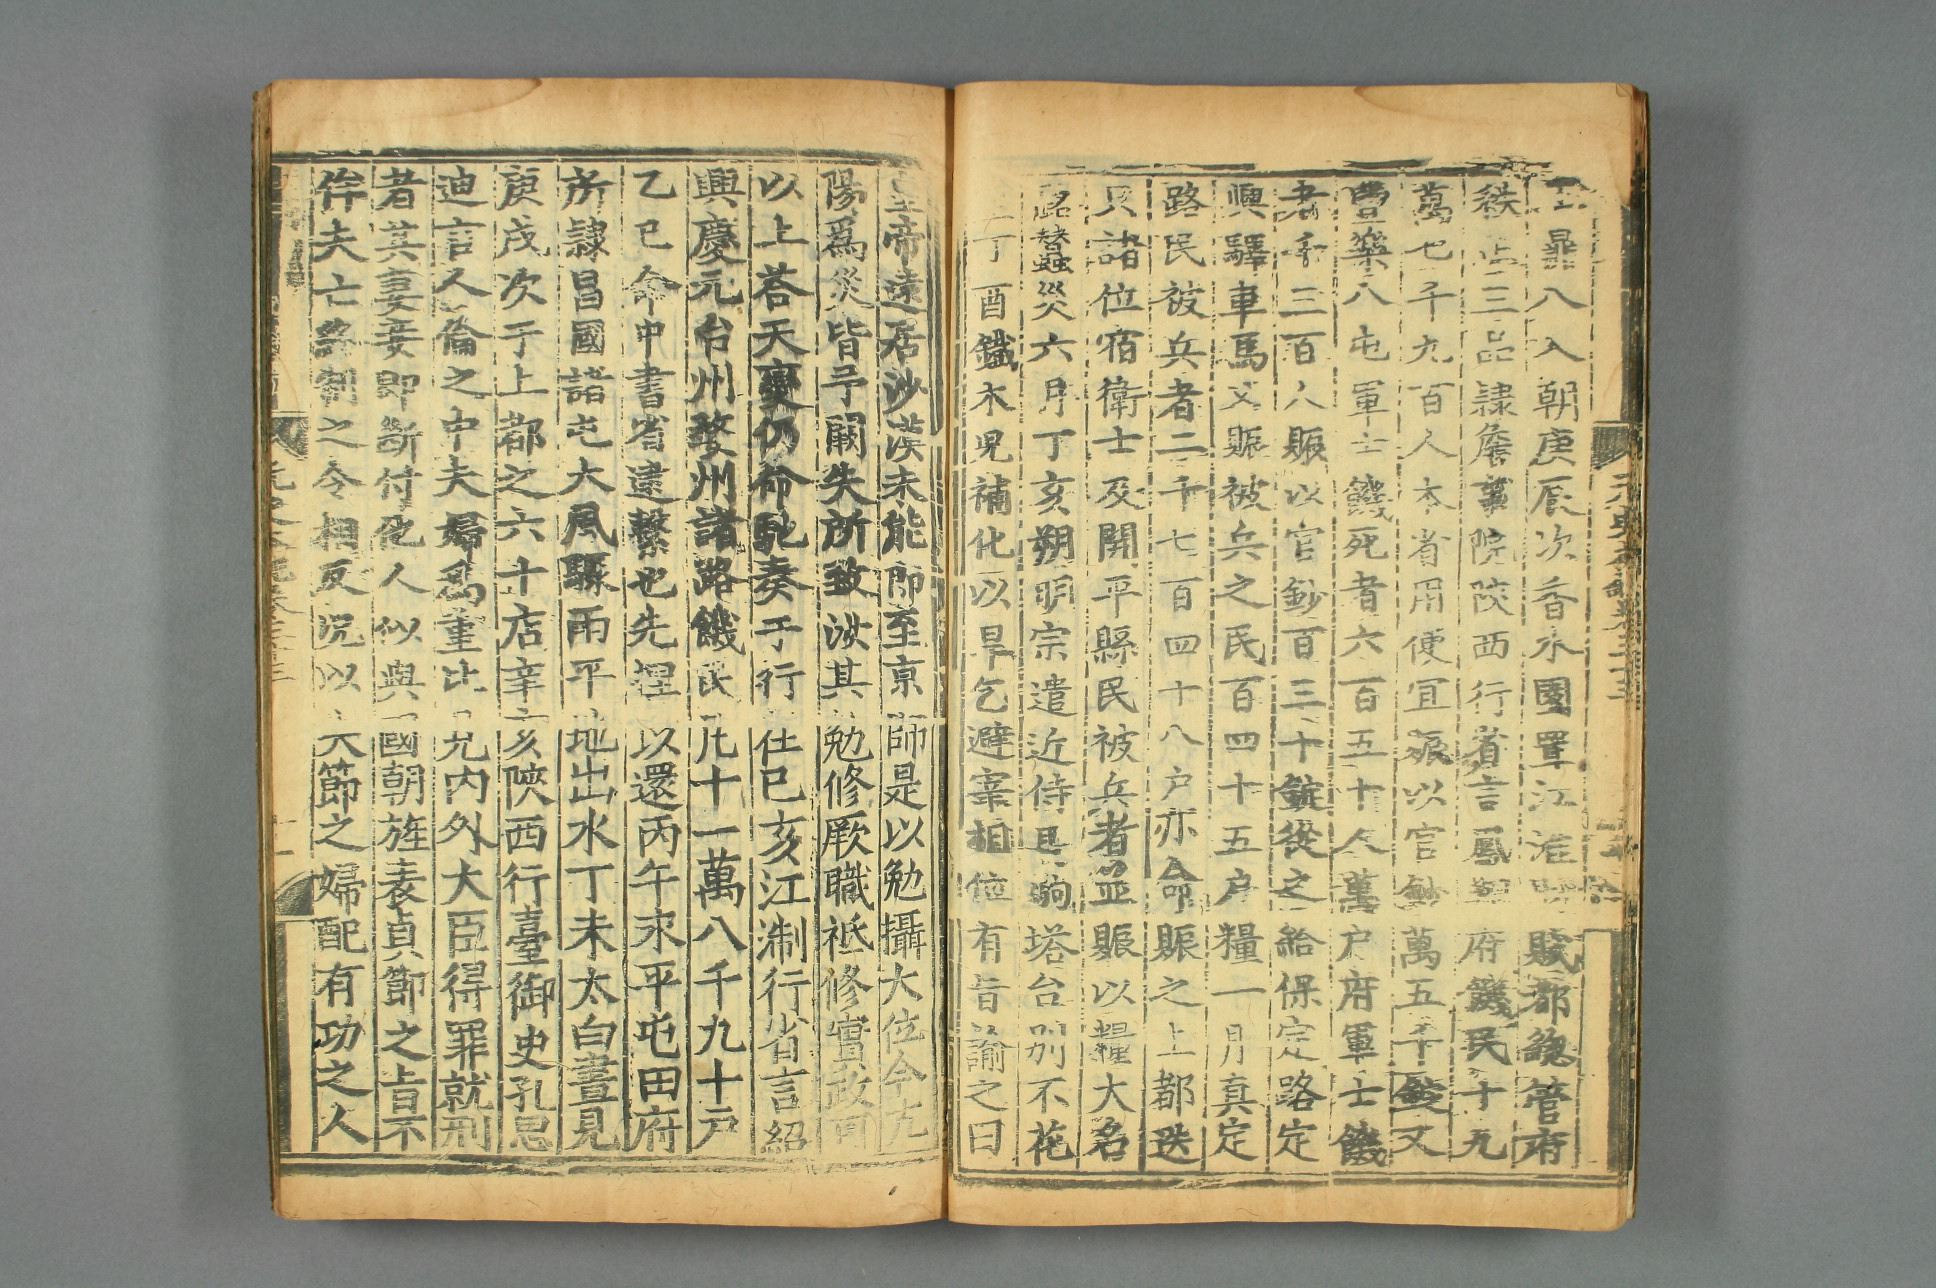 王暴八入朝庚辰次香水園置江淮財賦都緫管府
秩正三品隷詹事院陜西行省言鳳翔府饑民十九
萬七千九百人本省用便宜賑以官鈔萬五千錠又
豊樂八屯軍士饑死者六百五十人萬户府軍士饑
者千三百人賑以官鈔百三十錠從之給保定路定
興驛車馬又賑被兵之民百四十五户糧一月真定
路民被兵者二千七百四十八户亦命賑之上都迭
只諸位宿衛士及開平縣民被兵者並賑以糧大名
路蠶災六月丁亥朔明宗遣近侍馬駒塔台别不花
丁酉鐵木兒補化以旱乞避宰相位有旨諭之曰
皇帝遠居沙漠未能即至京師是以勉攝大位今亢
陽爲災皆予闕失所致汝其勉修厥職祗修實政可
以上荅天變仍命馳奏于行在己亥江浙行省言紹
興慶元台州婺州諸路饑民凡十一萬八千九十户
乙巳命中書省逮繫也先捏以還丙午永平屯田府
所隷昌國諸屯大風驟雨平地出水丁未太白晝見
庚戌次于上都之六十店辛亥陜西行臺御史孔思
迪言人倫之中夫婦爲重比見内外大臣得罪就刑
者其妻妾即斷付他人似與國朝旌表貞節之旨不
侔夫亡終制之令相反况以失節之婦配有功之人
元史本紀卷三十三